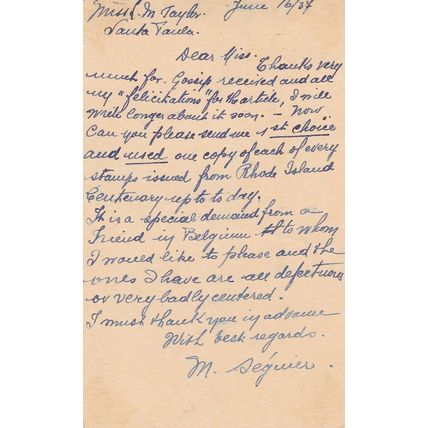 Miss L. M Taylor. June 16/37
Santa Paula.
Dear Miss.
Thanks very
much for. Gossip received and all
my "felicitations" for the article, I will
write longer about it soon. – Now
Can you please send me 1st choice
and used one copy of each of every
stamps issued from Rhode Island
Centenary up to to day.
This is a special demand from a
Friend in Belgium to whom
I would like to please and the
ones I have are all defectuous
or very badly centered.
I must thank you in advance
With best regards.
M. Séguier.